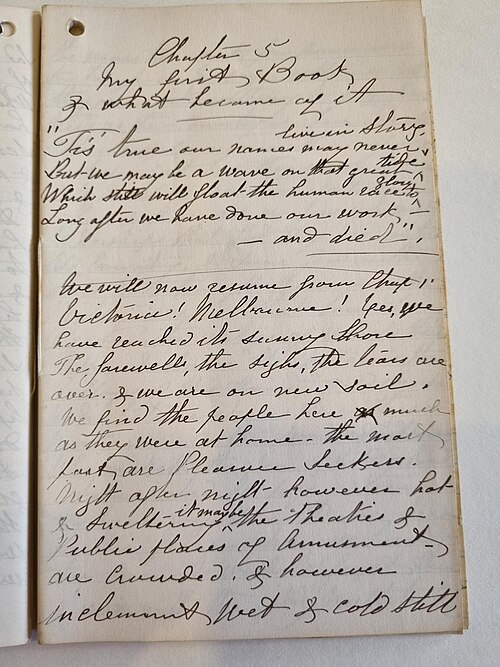 Chapter 5
My first Book
& what became of it
"Tis' true our names may never live in Story,
But we may be a wave on that great tide
Which still will float the human race to glory
Long after we have done our work –
– and died".
We will now resume from Chap 1"
Victoria! Melbourne! Yes, we
have reached its sunny shore
The farewells, the sighs, the tears are
over. & we are on new soil.
We find the people here as much
as they were at home – the most
part are Pleasure Seekers.
Night after night however hot
& sweltering it may be, the Theatres &
Public places of Amusment
are crowded. & however
inclemment wet & cold still